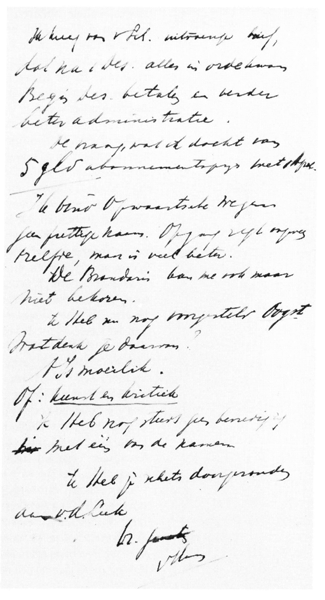 Ik kreeg van v. Sch. uitvoerige brief,
dat na 1 Dec. alles in orde kwam
Begin Dec. betalen en verder
beter administratie.
De vraag wat ik dacht van
5 gld abonnementsprijs met
Ik vind Opwaartsche Wegen
geen prettige naam. Opgang zegt ongeveer
hetzelfde, maar is veel beter.
De Brandaris kan me ook maar
niet bekoren.
Ik Heb nu nog voorgesteld Oogst
Wat denk je daarvan?
't Is moeilik.
Of: kunst en kritiek
Ik Heb nog steeds geen bevrediging
met één van de namen
Ik Heb je schets doorgezonden
aan v.d. Leek